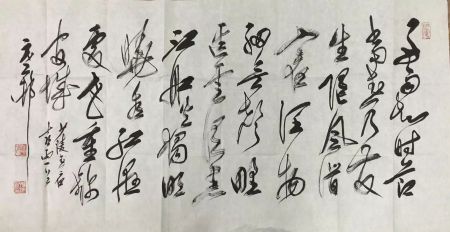 好雨知时节
当春乃发
生随风潜
入夜润物
细无声野
径云俱黑
江船火独明
晓看红湿
处花重锦
官城